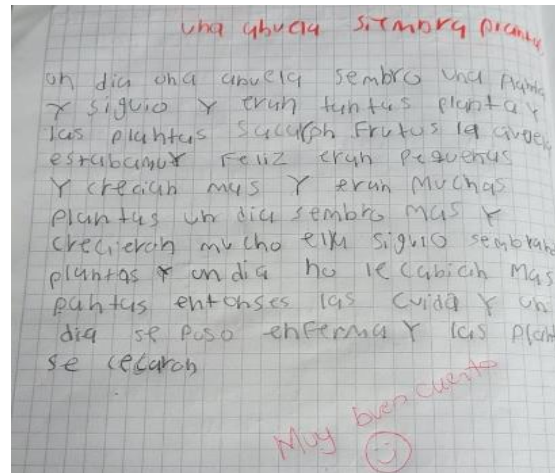 una abuela siembra planta
un dia una abuela sembro una planta
Y siguio Y eran tantas planta Y
las plantas sacaron Frutos la abuela
estabamuy Feliz eran pequenas
Y crecian mas Y eran Muchas
Plantas un dia sembro mas Y
crecieron mucho ella siguio sembran
plantas Y un dia no le cabian Mas
pantas entonses las cuida Y un
dia se puso enferma Y las plan
se cecaron
Muy buen cuento